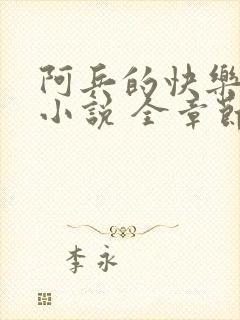 阿兵的快樂
小說 全章節
李永